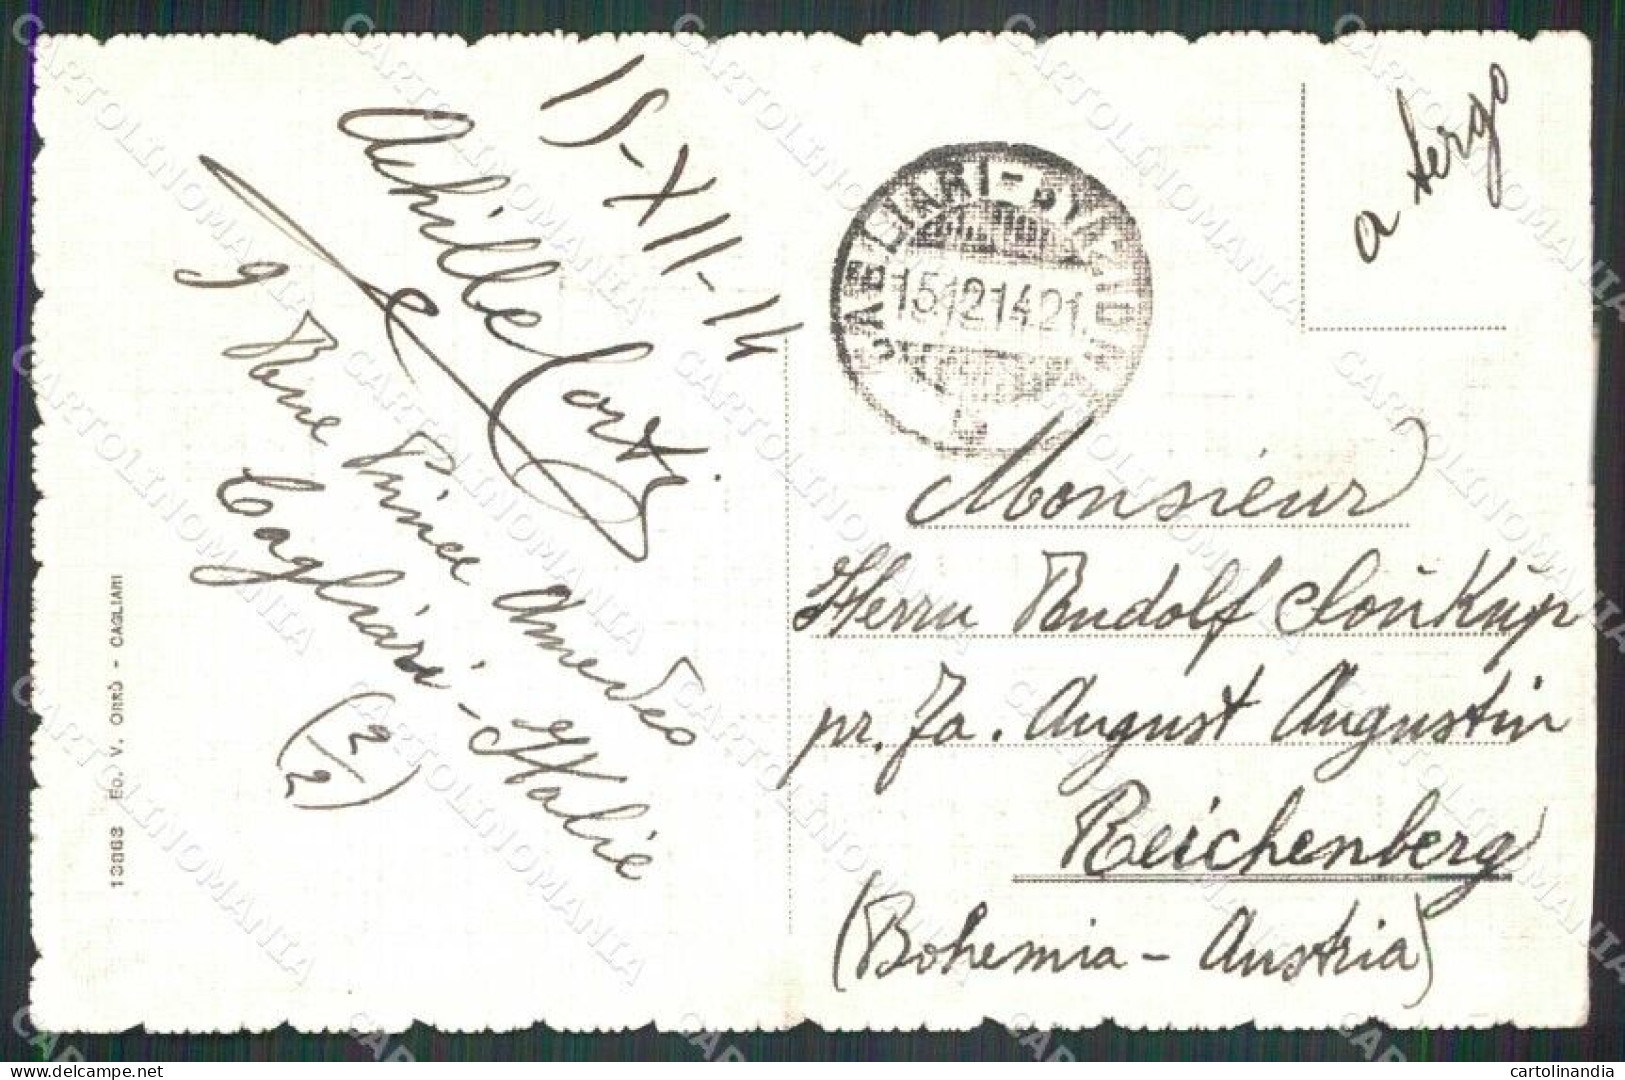 15-XII-14
Achille Corti
9 Rue Prince Amedeo
Cagliari - Italie
(2/2)
13363 ED. V. ORRÙ - CAGLIARI
a tergo
CAGLIARI
15.12.14.21
Monsieur
Herrn Rudolf Soukup
pr. Fa. August Augustin
Reichenberg
(Bohemia - Austria)
CARTOLINOMANIA
delcampe.net
cartolinandia